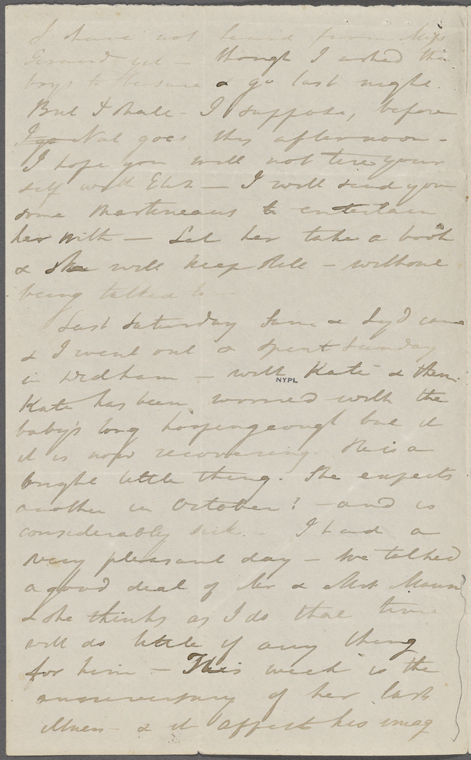 I have not heard from Miss
yet - though I asked the
boys to & go last night.
But I shall - I suppose, before
Nat goes this afternoon -
I hope you will not tire your
self with Eliz - I will send you
some Martineaus to entertain
her with - Let her take a book
& she will keep still - without
being talked to -
Last Saturday Sam & Syd came
& I went out & spent Sunday
in Dedham - with Kate &
NYPL
Kate has been worried with the
baby's long hooping cough but it
it is now recovering. He is a
bright little thing. She expects
another in October! - and is
considerably sick. - I had a
very pleasant day - We talked
a good deal of Mr & Mrs Mann
& she thinks as I do that time
will do little if any thing
for him - This week is the
anniversary of her last
illness - & it affects his imag